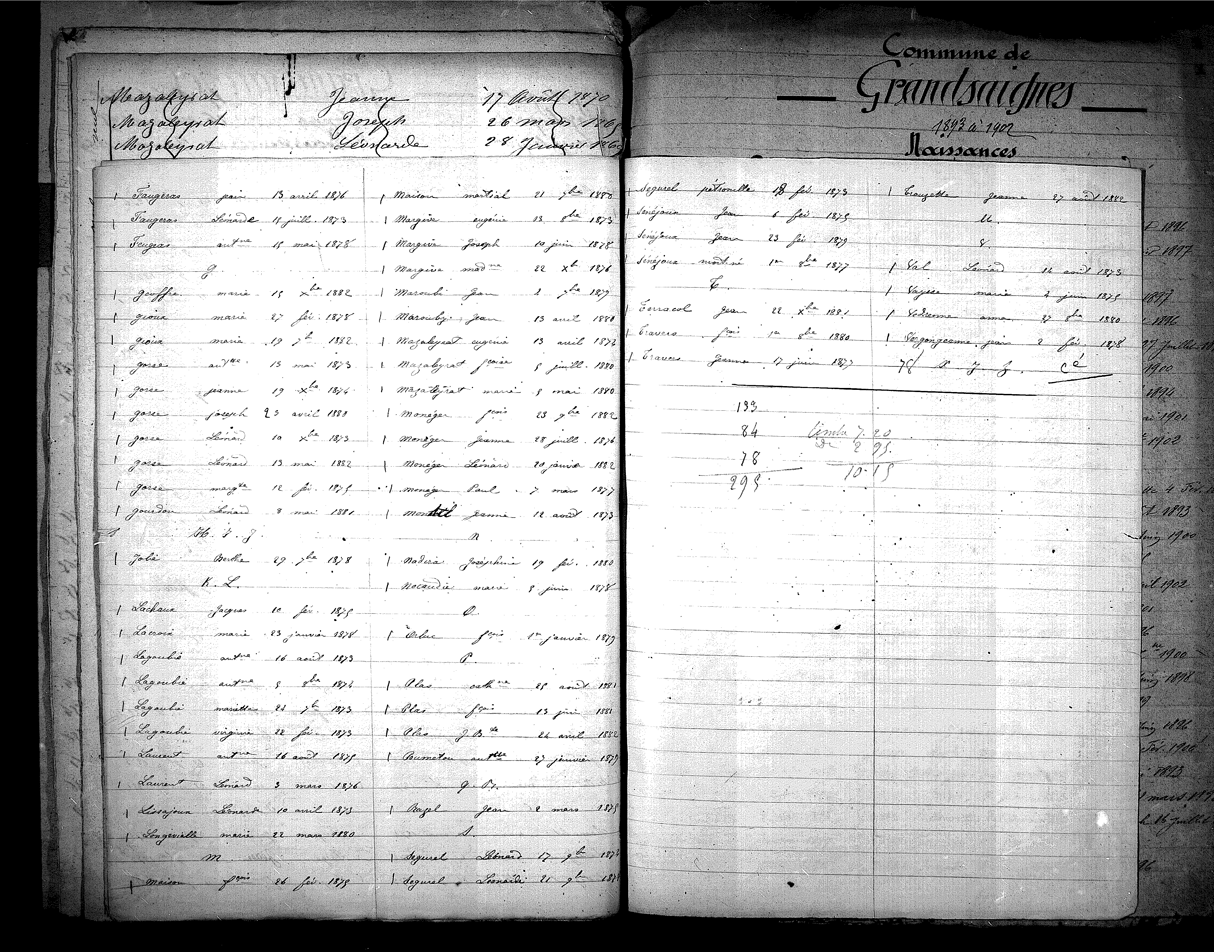 Mazaleyrat Jeanne 17 Août 1870
Mazaleyrat Joseph 26 mars 1869
Mazaleyrat Léonarde 28 Janvier 186
Faugeras jean 13 avril 1876
Faugeras Léonarde 14 juillet 1873
Feugeas antne 15 mai 1878
G
geoffre marie 15 xbre 1882
gioux marie 27 fév. 1878
gioux marie 19 7b 1882
gorse antne 13 mai 1873
gorse jeanne 19 xbre 1874
gorse joseph 23 avril 1881
gorse Léonard 10 xbre 1873
gorse Léonard 13 mai 1882
gorse margte 12 fév. 1875
gourdon Léonard 8 mai 1881
H. I. J.
Jolie Berthe 29 7bre 1878
K. L.
Lachaux Jacques 10 fév. 1875
Lacroix marie 23 janvier 1878
Lagoubie antne 16 août 1873
Lagoubie antne 5 8bre 1874
Lagoubie mariette 23 7b 1873
Lagoubie virginie 22 fév. 1873
Laurent antne 16 août 1875
Laurent Léonard 3 mars 1876
Lissajoux Léonarde 10 avril 1873
Longevialle marie 22 mars 1880
M
Maison fçois 26 fév. 1875
Maison martial 21 9bre 1880
Margive eugénie 13 8bre 1873
Margive Joseph 10 juin 1878
Margive madne 22 xb 1876
Maroubi Jean 2 9bre 1879
Marouby Jean 13 avril 1880
Mazaleyrat eugénie 13 avril 1872
Mazaleyrat fçoise 5 juillet 1880
Mazaleyrat marie 5 mai 1880
Moneger fçois 23 9bre 1882
Moneger Jeanne 28 juillt 1876
Moneger Léonard 20 janvier 1882
Moneger Paul 7 mars 1877
Jeanne 12 août 1873
N
Nadira Joséphine 19 fév. 1880
Nocaudie marie 5 juin 1878
O.
Orluc fçois 1er janvier 1879
P.
Plas cathne 25 août 1881
Plas fçois 13 juin 1881
Plas J. Bte 24 avril 1882
Pourneton antne 27 janvier 187
Q. R.
Razel Jean 2 mars 1875
S.
Segurel Léonard 17 9b 187
Segurel Léonarde 21 9b 187
Commune de
Grandsaignes
1893 à 1902
Naissances
Segurel pétronille 18 fév. 1873
Sénéjoux Jean 6 fév. 1875
Sénéjoux Jean 23 fév. 1879
Sénéjoux martine 1er 8bre 1877
T.
Terracol Jean 22 xbre 1881
Travers fçois 1er 8bre 1880
Travers Jeanne 17 juin 1877
Trouzette Jeanne 27 août 1882
U.
V.
Val Léonard 14 août 1873
Vayssе marie 2 juin 1875
Vedrenne anna 27 8bre 1880
Vergongeanne jean 2 fév. 1878
133
84
78
295
timbre 7.20
de 2 95.
10.15
1896
1897
1897
1896
27 Juillet
1900
1894
1901
1902
1893
1900
1902
1900
1896
1893
mars
16 juillet
96